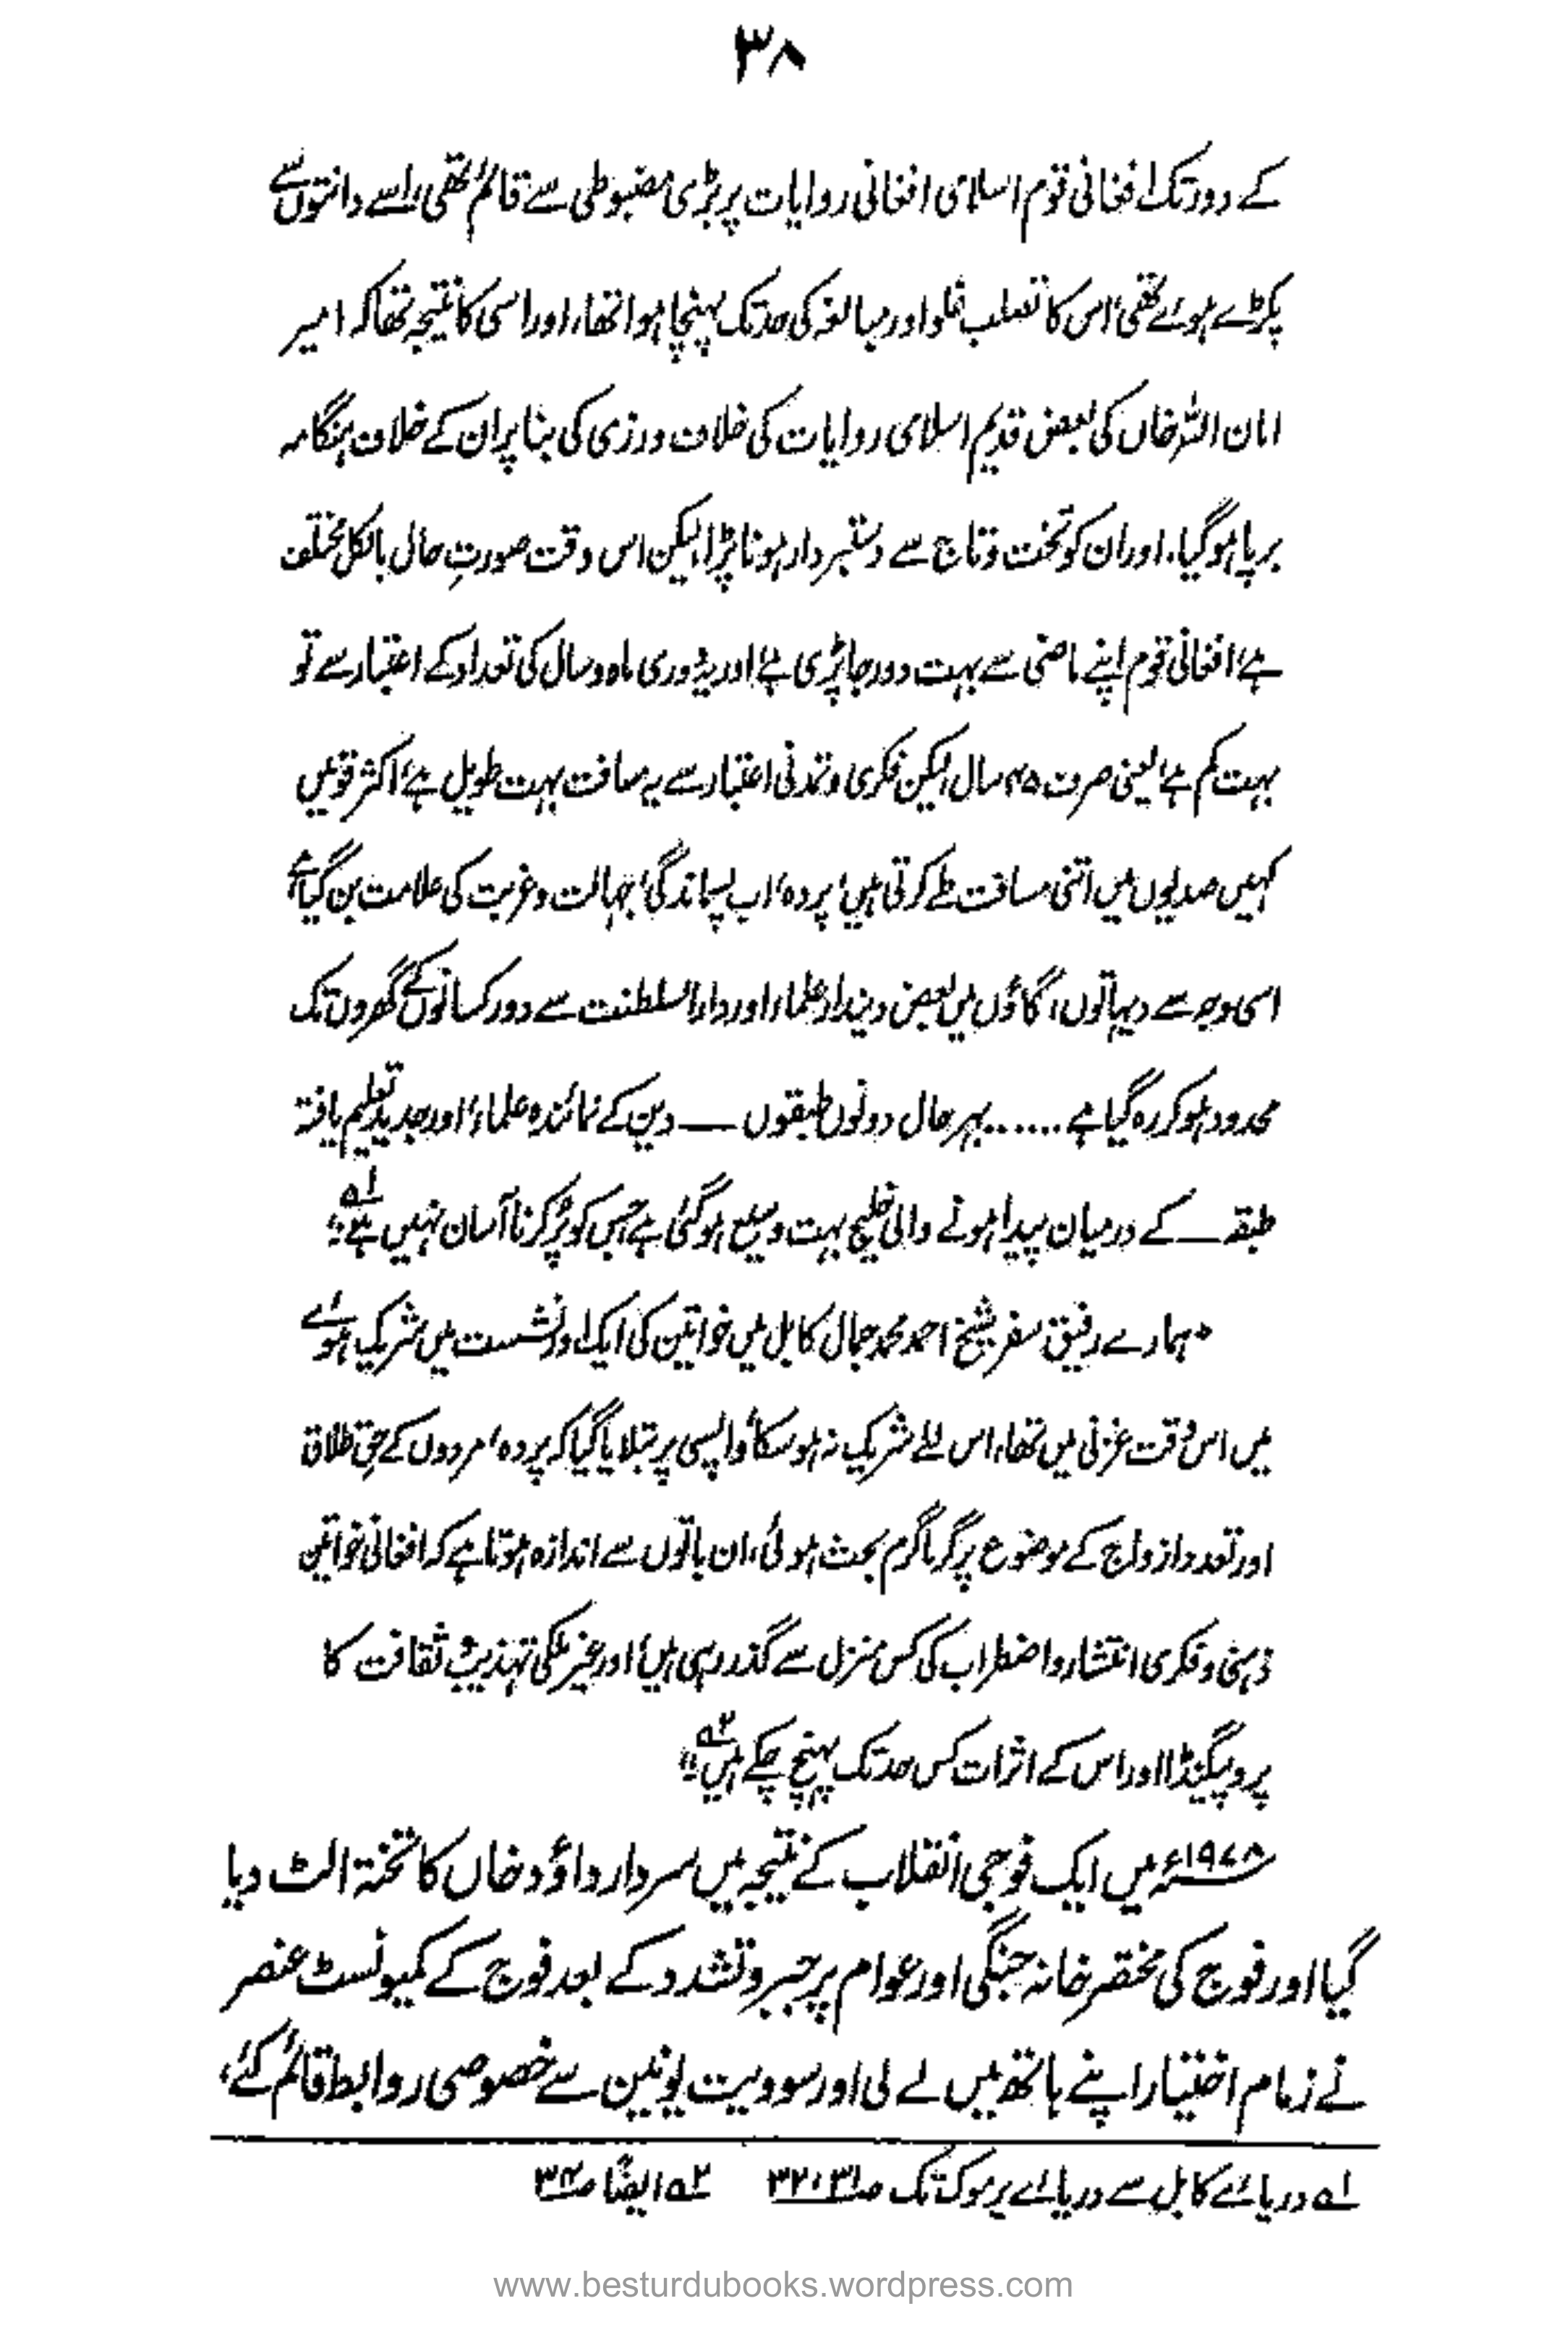 ۳۸
کے دور تک افغانی قوم اسلامی افغانی روایات پر بڑی مضبوطی سے قائم تھی، اسے دانتوں سے
پکڑے ہوئے تھی، اس کا تصلب غلو اور مبالغہ کی حد تک پہنچا ہوا تھا، اور اسی کا نتیجہ تھا کہ امیر
امان اللہ خاں کی بعض قدیم اسلامی روایات کی خلاف ورزی کی بنا پر ان کے خلاف ہنگامہ
برپا ہوگیا، اور ان کو تخت و تاج سے دستبردار ہونا پڑا، لیکن اس وقت صورتِ حال بالکل مختلف
ہے، افغانی قوم اپنے ماضی سے بہت دور جا پڑی ہے، اور یہ دوری ماہ و سال کی تعداد کے اعتبار سے تو
بہت کم ہے، یعنی صرف ۴۵ سال، لیکن فکری و تمدنی اعتبار سے یہ مسافت بہت طویل ہے، اکثر قومیں
کہیں صدیوں میں اتنی مسافت طے کرتی ہیں، پردہ، اب پسماندگی، جہالت و غربت کی علامت بن گیا ہے،
اسی وجہ سے دیہاتوں، گاؤں میں بعض دیندار علماء اور دارالسلطنت سے دور کسانوں کے گھروں تک
محدود ہوکر رہ گیا ہے ...... بہرحال دونوں طبقوں — دین کے نمائندہ علماء، اور جدید تعلیم یافتہ
طبقہ — کے درمیان پیدا ہونے والی خلیج بہت وسیع ہوگئی ہے جس کو پُر کرنا آسان نہیں ہے۱؎"
"ہمارے رفیق سفر شیخ احمد محمد جمال کابل میں خواتین کی ایک اور نشست میں شریک ہوئے
میں اس وقت غزنی میں تھا، اس لئے شریک نہ ہوسکا، واپسی پر بتلایا گیا کہ پردہ، مردوں کے حق طلاق
اور تعدد ازواج کے موضوع پر گرما گرم بحث ہوئی، ان باتوں سے اندازہ ہوتا ہے کہ افغانی خواتین
ذہنی و فکری انتشار و اضطراب کی کس منزل سے گذر رہی ہیں، اور غیر ملکی تہذیب و ثقافت کا
پروپیگنڈا اور اس کے اثرات کس حد تک پہنچ چکے ہیں۲؎"
۱۹۷۸ء میں ایک فوجی انقلاب کے نتیجہ میں سردار داؤد خاں کا تختہ الٹ دیا
گیا اور فوج کی مختصر خانہ جنگی اور عوام پر جبر و تشدد کے بعد فوج کے کمیونسٹ عنصر
نے زمام اختیار اپنے ہاتھ میں لے لی اور سوویت یونین سے خصوصی روابط قائم کئے،
۱؎ دریائے کابل سے دریائے یرموک تک صـ۳۱، ۳۲ ۲؎ ایضًا صـ۳۴
www.besturdubooks.wordpress.com